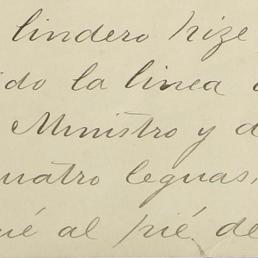 lindero hize
ido la linea
Ministro y d
cuatro leguas,
ué al pié de